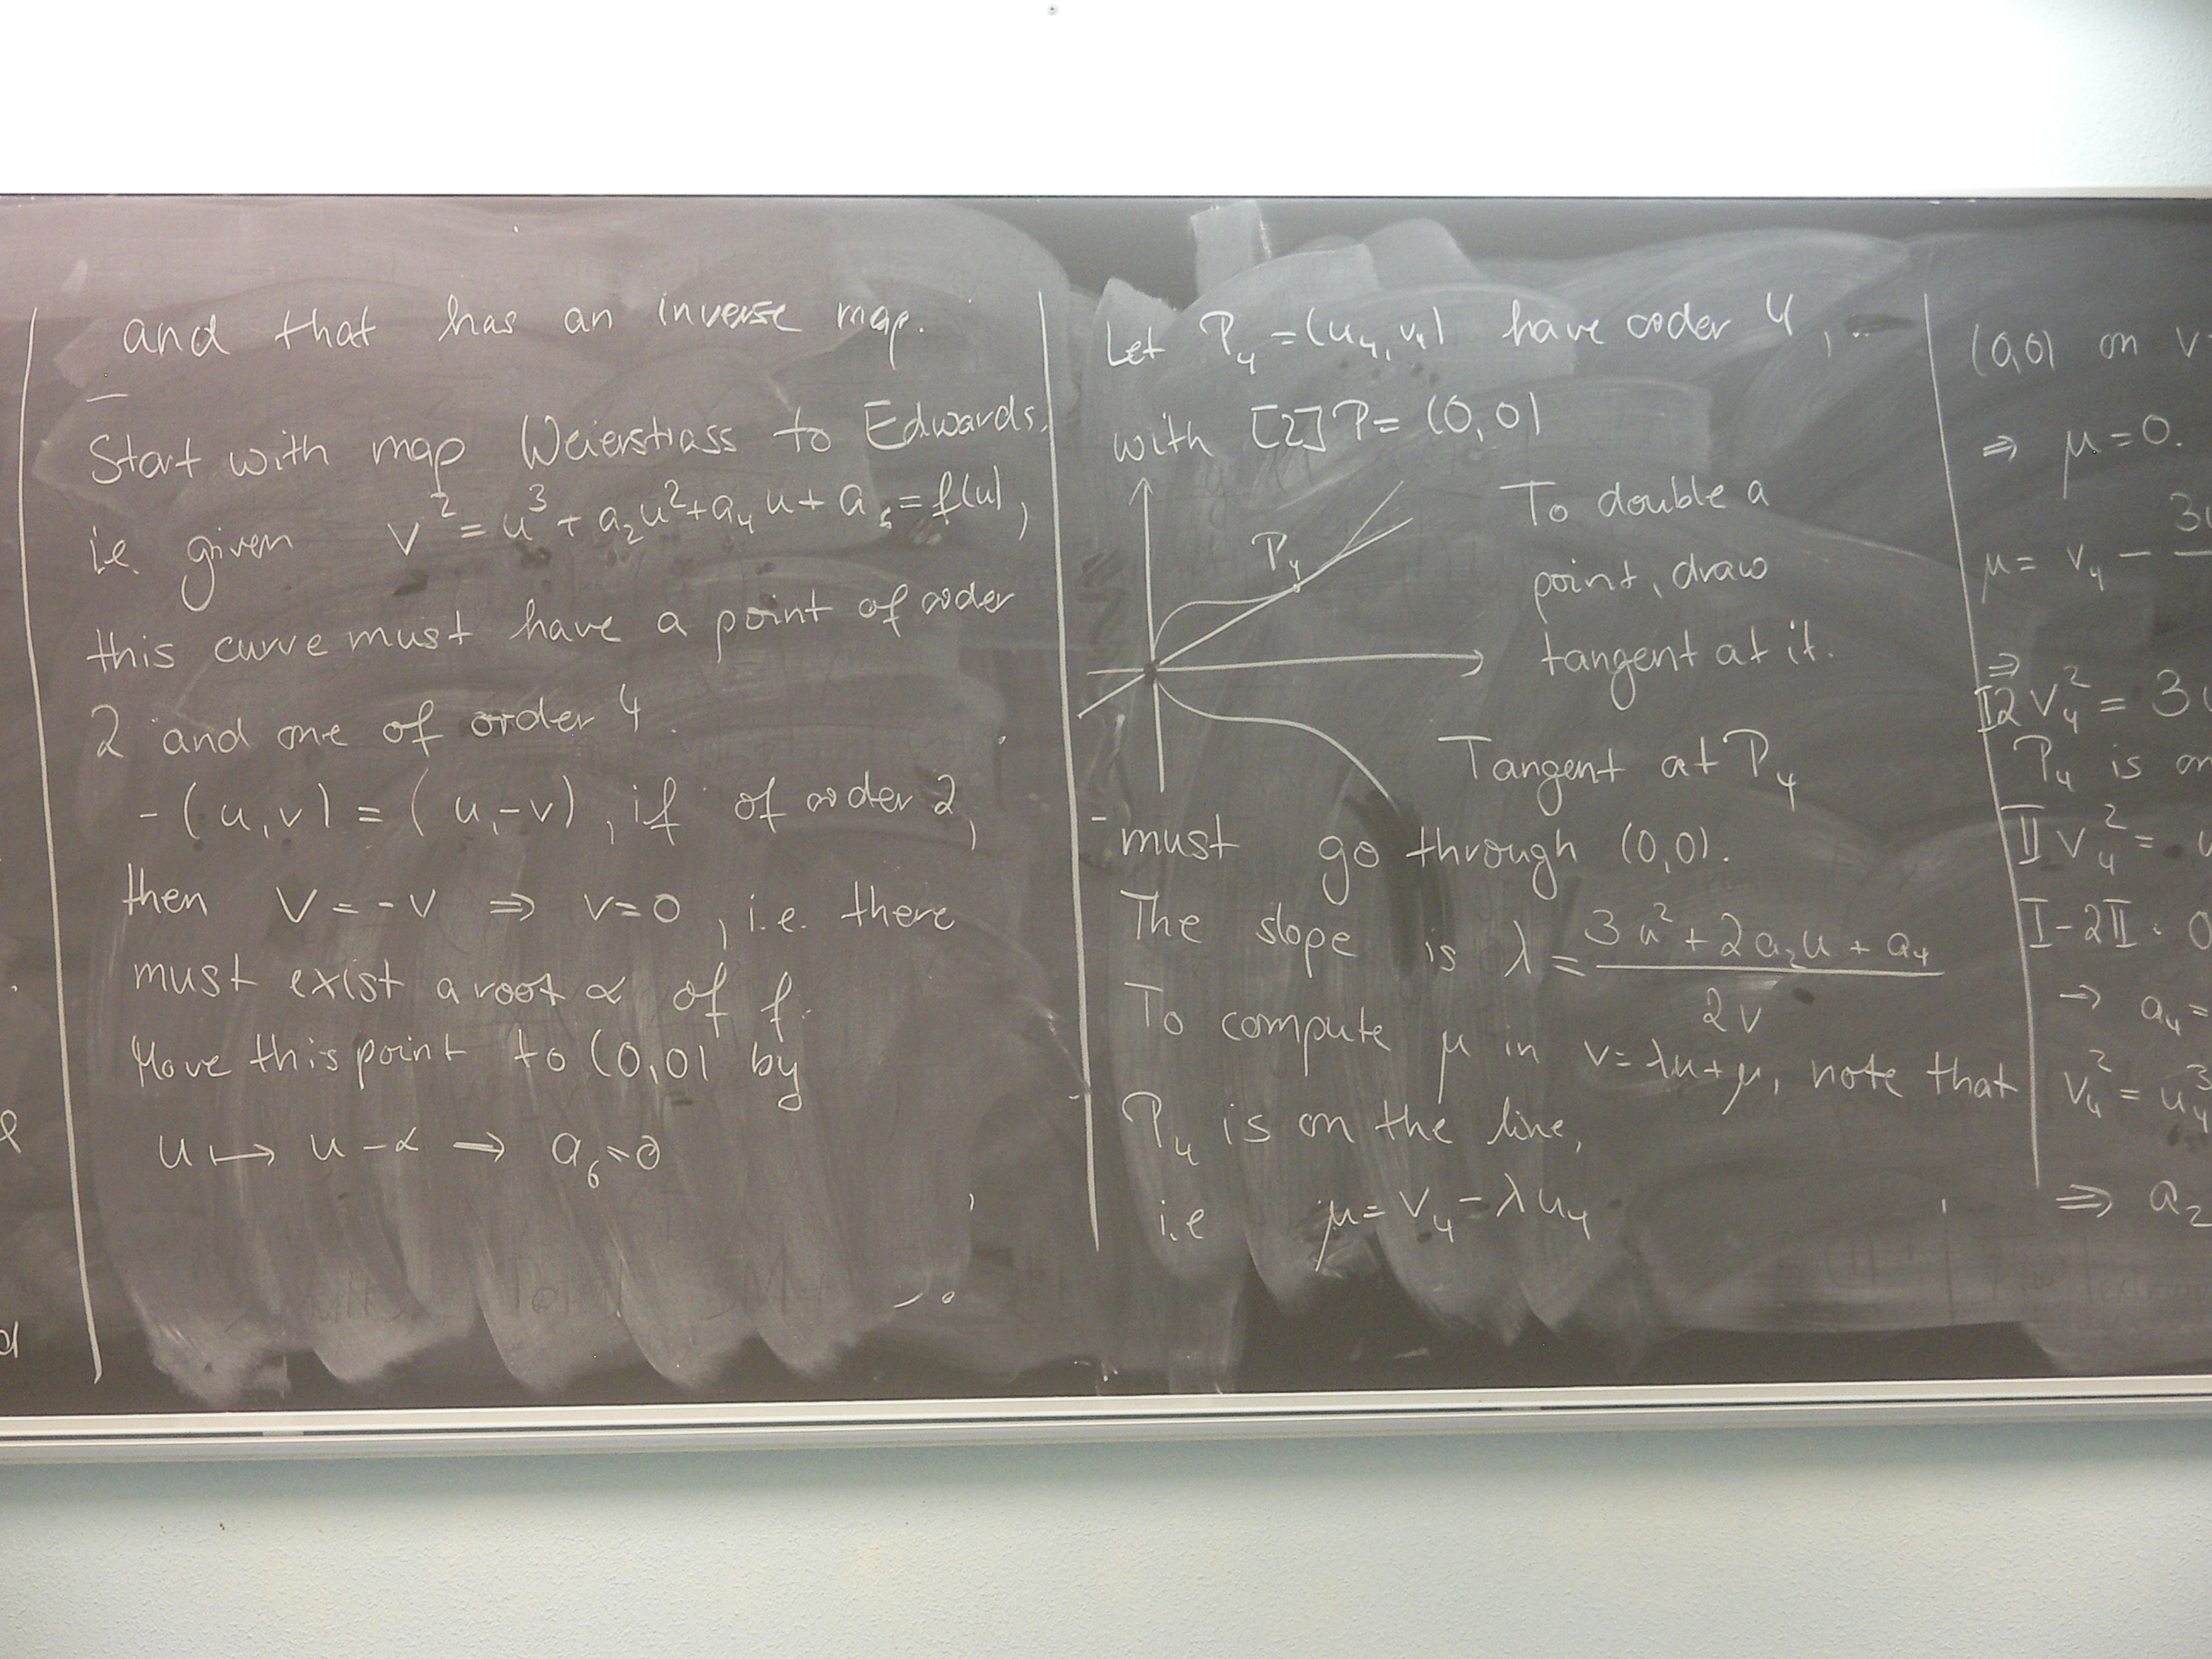 and that has an inverse map.
Start with map Weierstrass to Edwards,
i.e. given v² = u³ + a₂u² + a₄u + a₆ = f(u),
this curve must have a point of order
2 and one of order 4.
-(u,v) = (u,-v), if of order 2,
then v = -v ⇒ v=0, i.e. there
must exist a root α of f.
Move this point to (0,0) by
u ↦ u-α → a₆=0
Let P₄ = (u₄, v₄) have order 4,
with [2]P = (0,0)
P₄
To double a
point, draw
tangent at it.
Tangent at P₄
must go through (0,0).
The slope is λ = (3u² + 2a₂u + a₄)/2v
To compute μ in v=λu+μ, note that
P₄ is on the line,
i.e μ = v₄ - λu₄
(0,0) on v
⇒ μ = 0.
μ = v₄ - 3u
⇒
I 2v₄² = 3u
P₄ is on
II v₄² = u
I-2II: 0
→ a₄ =
v₄² = u₄³
⇒ a₂